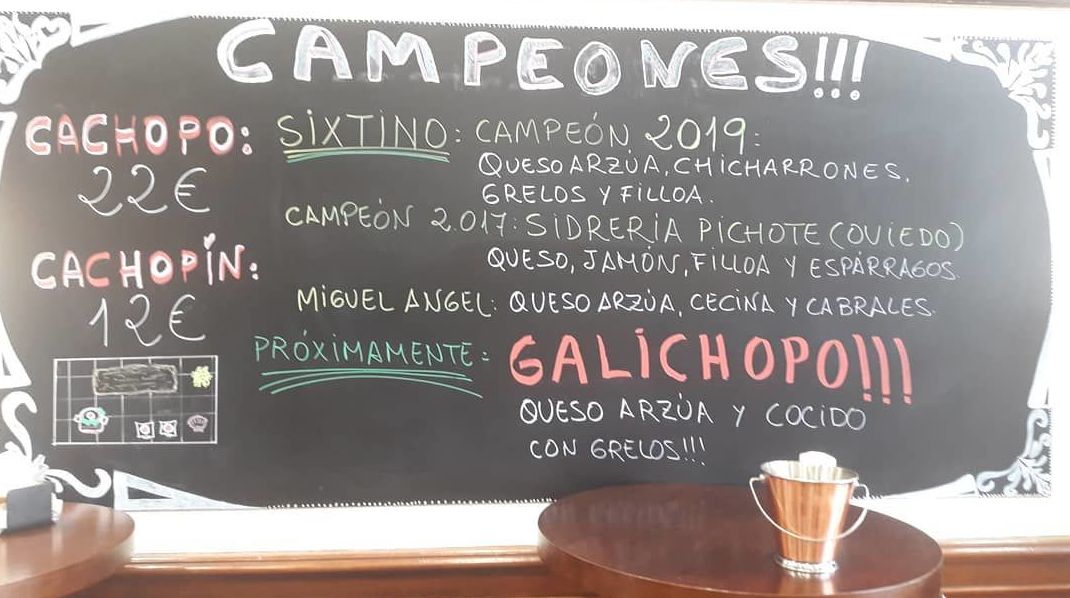 CAMPEONES!!!
CACHOPO:
22€
CACHOPÍN:
12€
SIXTINO: CAMPEÓN 2019:
QUESO ARZÚA, CHICHARRONES,
GRELOS Y FILLOA.
CAMPEÓN 2.017: SIDRERÍA PICHOTE (OVIEDO)
QUESO, JAMÓN, FILLOA Y ESPÁRRAGOS.
MIGUEL ANGEL: QUESO ARZÚA, CECINA Y CABRALES.
PRÓXIMAMENTE: GALICHOPO!!!
QUESO ARZÚA Y COCIDO
CON GRELOS!!!